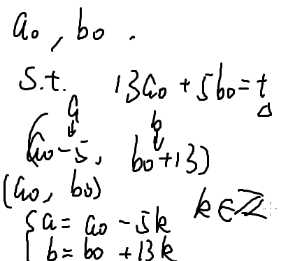 a₀, b₀.
s.t. 13a₀ + 5b₀ = t
a b
(a₀-5, b₀+13)
(a₀, b₀)
{ a = a₀ - 5k k∈ℤ
b = b₀ + 13k